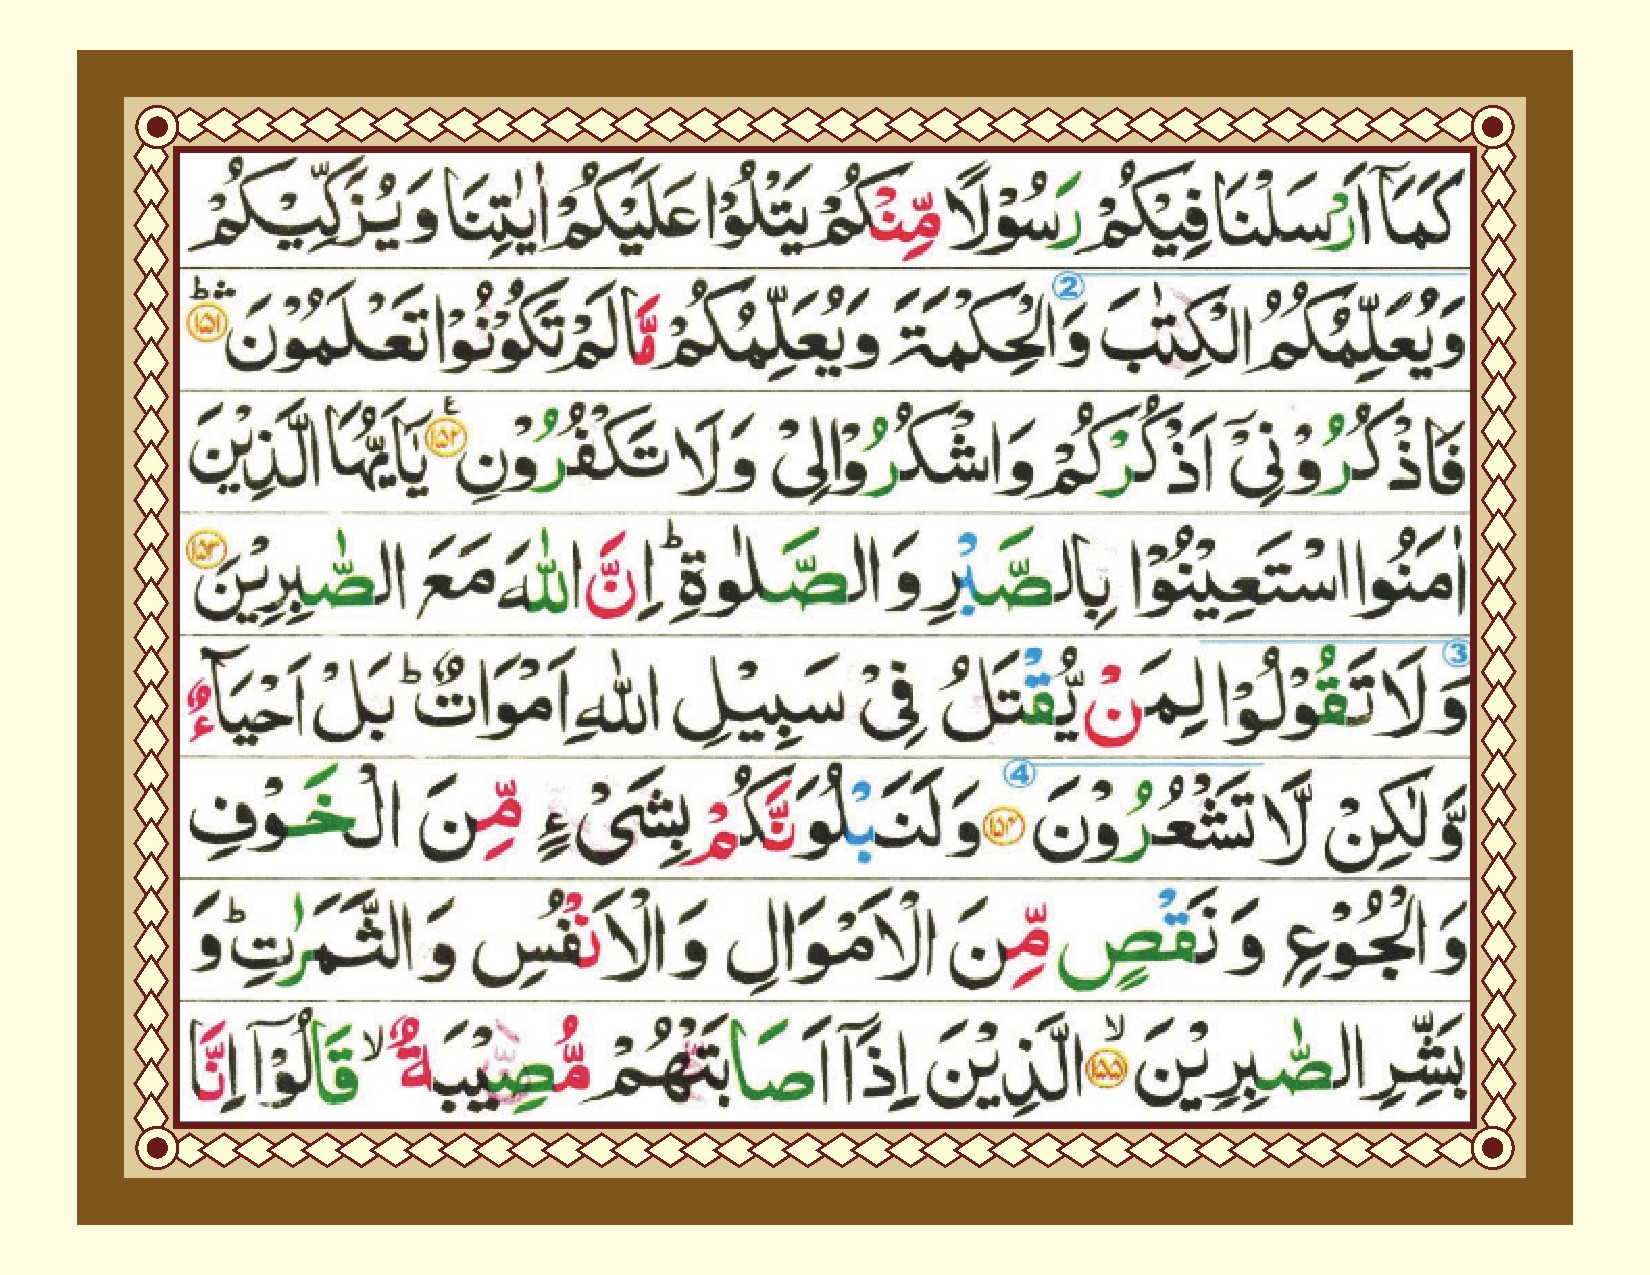 كَمَآ اَرْسَلْنَا فِيْكُمْ رَسُوْلًا مِّنْكُمْ يَتْلُوْا عَلَيْكُمْ اٰيٰتِنَا وَيُزَكِّيْكُمْ
وَيُعَلِّمُكُمُ الْكِتٰبَ وَالْحِكْمَةَ ② وَيُعَلِّمُكُمْ مَّا لَمْ تَكُوْنُوْا تَعْلَمُوْنَ ۛؕ ۱۵۱
فَاذْكُرُوْنِيْٓ اَذْكُرْكُمْ وَاشْكُرُوْا لِيْ وَلَا تَكْفُرُوْنِ ۱۵۲ ع يٰٓاَيُّهَا الَّذِيْنَ
اٰمَنُوا اسْتَعِيْنُوْا بِالصَّبْرِ وَالصَّلٰوةِ ؕ اِنَّ اللّٰهَ مَعَ الصّٰبِرِيْنَ ۱۵۳
③ وَلَا تَقُوْلُوْا لِمَنْ يُّقْتَلُ فِيْ سَبِيْلِ اللّٰهِ اَمْوَاتٌ ؕ بَلْ اَحْيَآءٌ
وَّلٰكِنْ لَّا تَشْعُرُوْنَ ④ ۱۵۴ وَلَنَبْلُوَنَّكُمْ بِشَيْءٍ مِّنَ الْخَوْفِ
وَالْجُوْعِ وَنَقْصٍ مِّنَ الْاَمْوَالِ وَالْاَنْفُسِ وَالثَّمَرٰتِ ؕ وَ
بَشِّرِ الصّٰبِرِيْنَ ۙ ۱۵۵ الَّذِيْنَ اِذَآ اَصَابَتْهُمْ مُّصِيْبَةٌ ۙ قَالُوْٓا اِنَّا